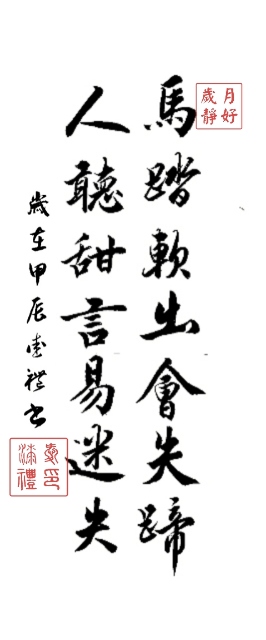 歲月
靜好
馬踏軟出會失蹄
人聽甜言易迷失
歲在甲辰禮书